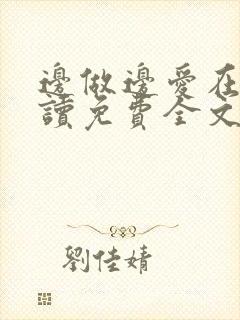 邊做邊愛在
讀免費全文
劉佳婧